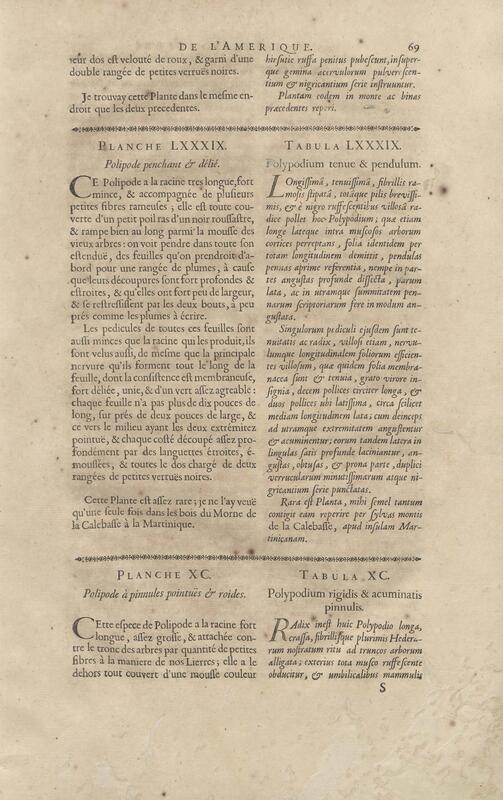 DE L'AMERIQUE. 69
leur dos est velouté de roux, & garni d'une
double rangée de petites verruës noires.
Je trouvay cette Plante dans le mesme en-
droit que les deux precedentes.
PLANCHE LXXXIX.
Polipode penchant & délié.
CE Polipode a la racine tres longue, fort
mince, & accompagnée de plusieurs
petites fibres rameuses; elle est toute cou-
verte d'un petit poil ras d'un noir roussastre,
& rampe bien au long parmi la mousse des
vieux arbres: on voit pendre dans toute son
estenduë, des feuilles qu'on prendroit d'a-
bord pour une rangée de plumes, à cause
que leurs découpures sont fort profondes &
estroites, & qu'elles ont fort peu de largeur,
& se restressissent par les deux bouts, à peu
prés comme les plumes à écrire.
Les pedicules de toutes ces feuilles sont
aussi minces que la racine qui les produit, ils
sont velus aussi, de mesme que la principale
nervure qu'ils forment tout le long de la
feuille, dont la consistence est membraneuse,
fort déliée, unie, & d'un vert assez agreable:
chaque feuille n'a pas plus de dix pouces de
long, sur prés de deux pouces de large, &
ce vers le milieu ayant les deux extremitez
pointuë, & chaque costé découpé assez pro-
fondement par des languettes étroites, é-
moussées, & toutes le dos chargé de deux
rangées de petites verruës noires.
Cette Plante est assez rare; je ne l'ay veuë
qu'une seule fois dans les bois du Morne de
la Calebasse à la Martinique.
PLANCHE XC.
Polipode à pinnules pointuës & roides.
CEtte espece de Polipode a la racine fort
longue, assez grosse, & attachée con-
tre le tronc des arbres par quantité de petites
fibres à la maniere de nos Lierres; elle a le
dehors tout couvert d'une mousse couleur
hirsutie russa penitus pubescunt, insuper-
que gemina acervulorum pulverscen-
tium & nigricantium serie instruuntur.
Plantam eodem in monte ac binas
præcedentes reperi.
TABULA LXXXIX.
Polypodium tenue & pendulum.
LOngissimâ, tenuissimâ, fibrillis ra-
mosis stipatâ, totâque pilis brevissi-
mis, & è nigro ruffescentibus villosâ ra-
dice pollet hoc Polypodium; quæ etiam
longe lateque intra muscosos arborum
cortices perreptans, folia identidem per
totam longitudinem demittit, pendulas
pennas aprime referentia, nempe in par-
tes angustas profunde dissecta, parum
lata, ac in utramque summitatem pen-
narum scriptoriarum fere in modum an-
gustata.
Singulorum pediculi ejusdem sunt te-
nuitatis ac radix, villosi etiam, nervu-
lumque longitudinalem foliorum efficien-
tes villosum, quæ quidem folia membra-
nacea sunt & tenuia, grato virore in-
signia, decem pollices circiter longa, &
duos pollices ubi latissima, circa scilicet
mediam longitudinem lata; cum deinceps
ad utramque extremitatem angustentur
& acuminentur; eorum tandem latera in
lingulas satis profunde laciniantur, an-
gustas, obtusas, & prona parte, duplici
verrucularum minutissimarum atque ni-
gricantium serie punctatas.
Rara est Planta, mihi semel tantum
contigit eam reperire per sylvas montis
de la Calebasse, apud insulam Mar-
tinicanam.
TABULA XC.
Polypodium rigidis & acuminatis
pinnulis.
RAdix inest huic Polypodio longa,
crassa, fibrillisque plurimis Hedera-
rum nostratum ritu ad truncos arborum
alligata; exterius tota musco ruffescente
obducitur, & umbilicalibus mammulis
S